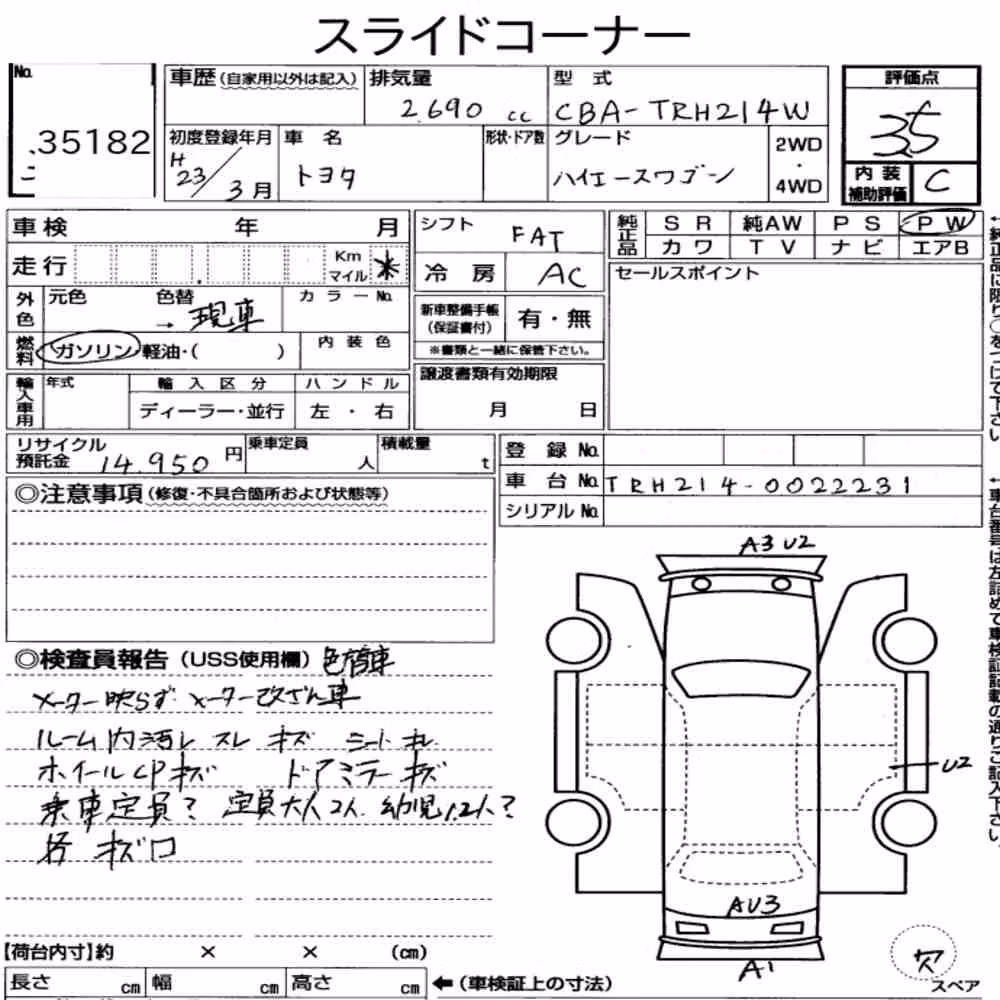 スライドコーナー
No. 35182
車歴(自家用以外は記入)
排気量 2.690 cc
型式 CBA-TRH214W
評価点 3.5
初度登録年月 H23/3月
車名 トヨタ
形状・ドア数
グレード ハイエースワゴン
2WD・4WD
内装補助評価 C
車検 年 月
シフト FAT
純正品 SR 純AW PS PW
カワ TV ナビ エアB
走行 Km マイル *
冷房 AC
セールスポイント
外色 元色 色替 → 現車 カラーNo.
新車整備手帳(保証書付) 有・無
※書類と一緒に保管下さい。
燃料 ガソリン・軽油・( ) 内装色
輸入車用 年式 輸入区分 ハンドル
ディーラー・並行 左・右
譲渡書類有効期限
月 日
リサイクル預託金 14.950円
乗車定員 人
積載量 t
登録No.
車台No. TRH214-0022231
シリアルNo.
◎注意事項(修復・不具合箇所および状態等)
◎検査員報告(USS使用欄) 色替車
メーター映らず メーター改ざん車
ルーム内汚レ スレ キズ シートキレ
ホイールCPキズ ドアミラーキズ
乗車定員? 定員大人2人 幼児12人?
各キズ凹
A3 U2
U2
AU3
A1
欠
スペア
【荷台内寸】約 × × (cm)
長さ cm 幅 cm 高さ cm
←(車検証上の寸法)
←純正品に限り○をつけて下さい
←車台番号は左詰めで車検証記載の通りご記入下さい。